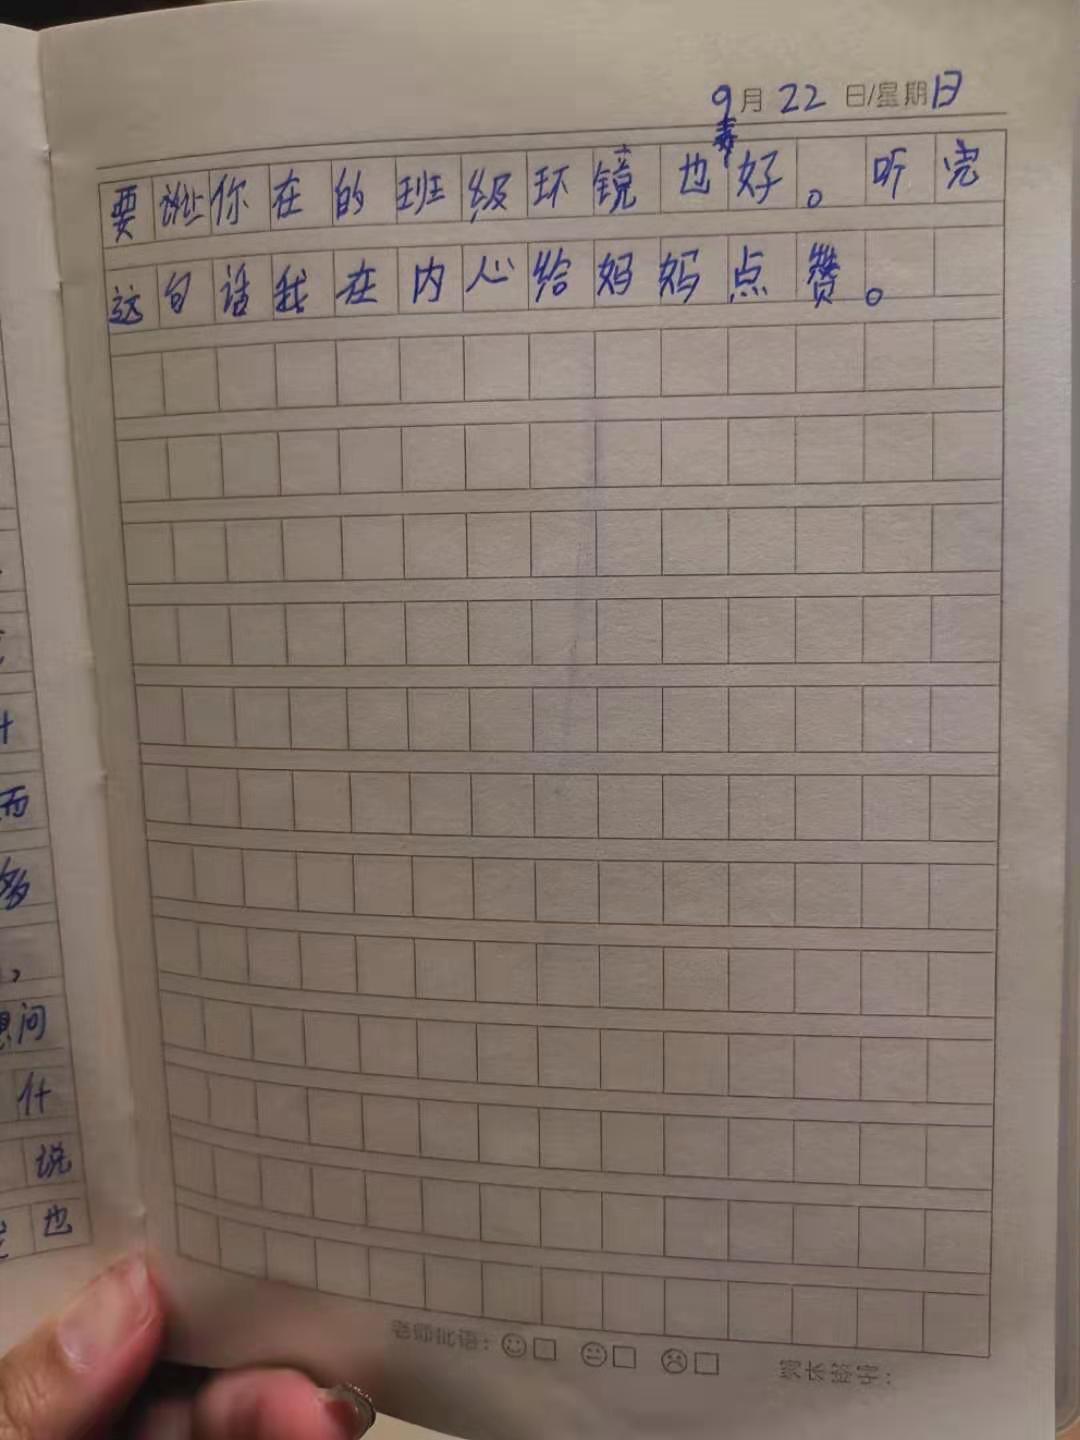 9月22日/星期日
要让你在的班级环镜也好。听完
这句话我在内心给妈妈点赞。
而
多
，
想问
什
说
也
老师批语：
家长签字：